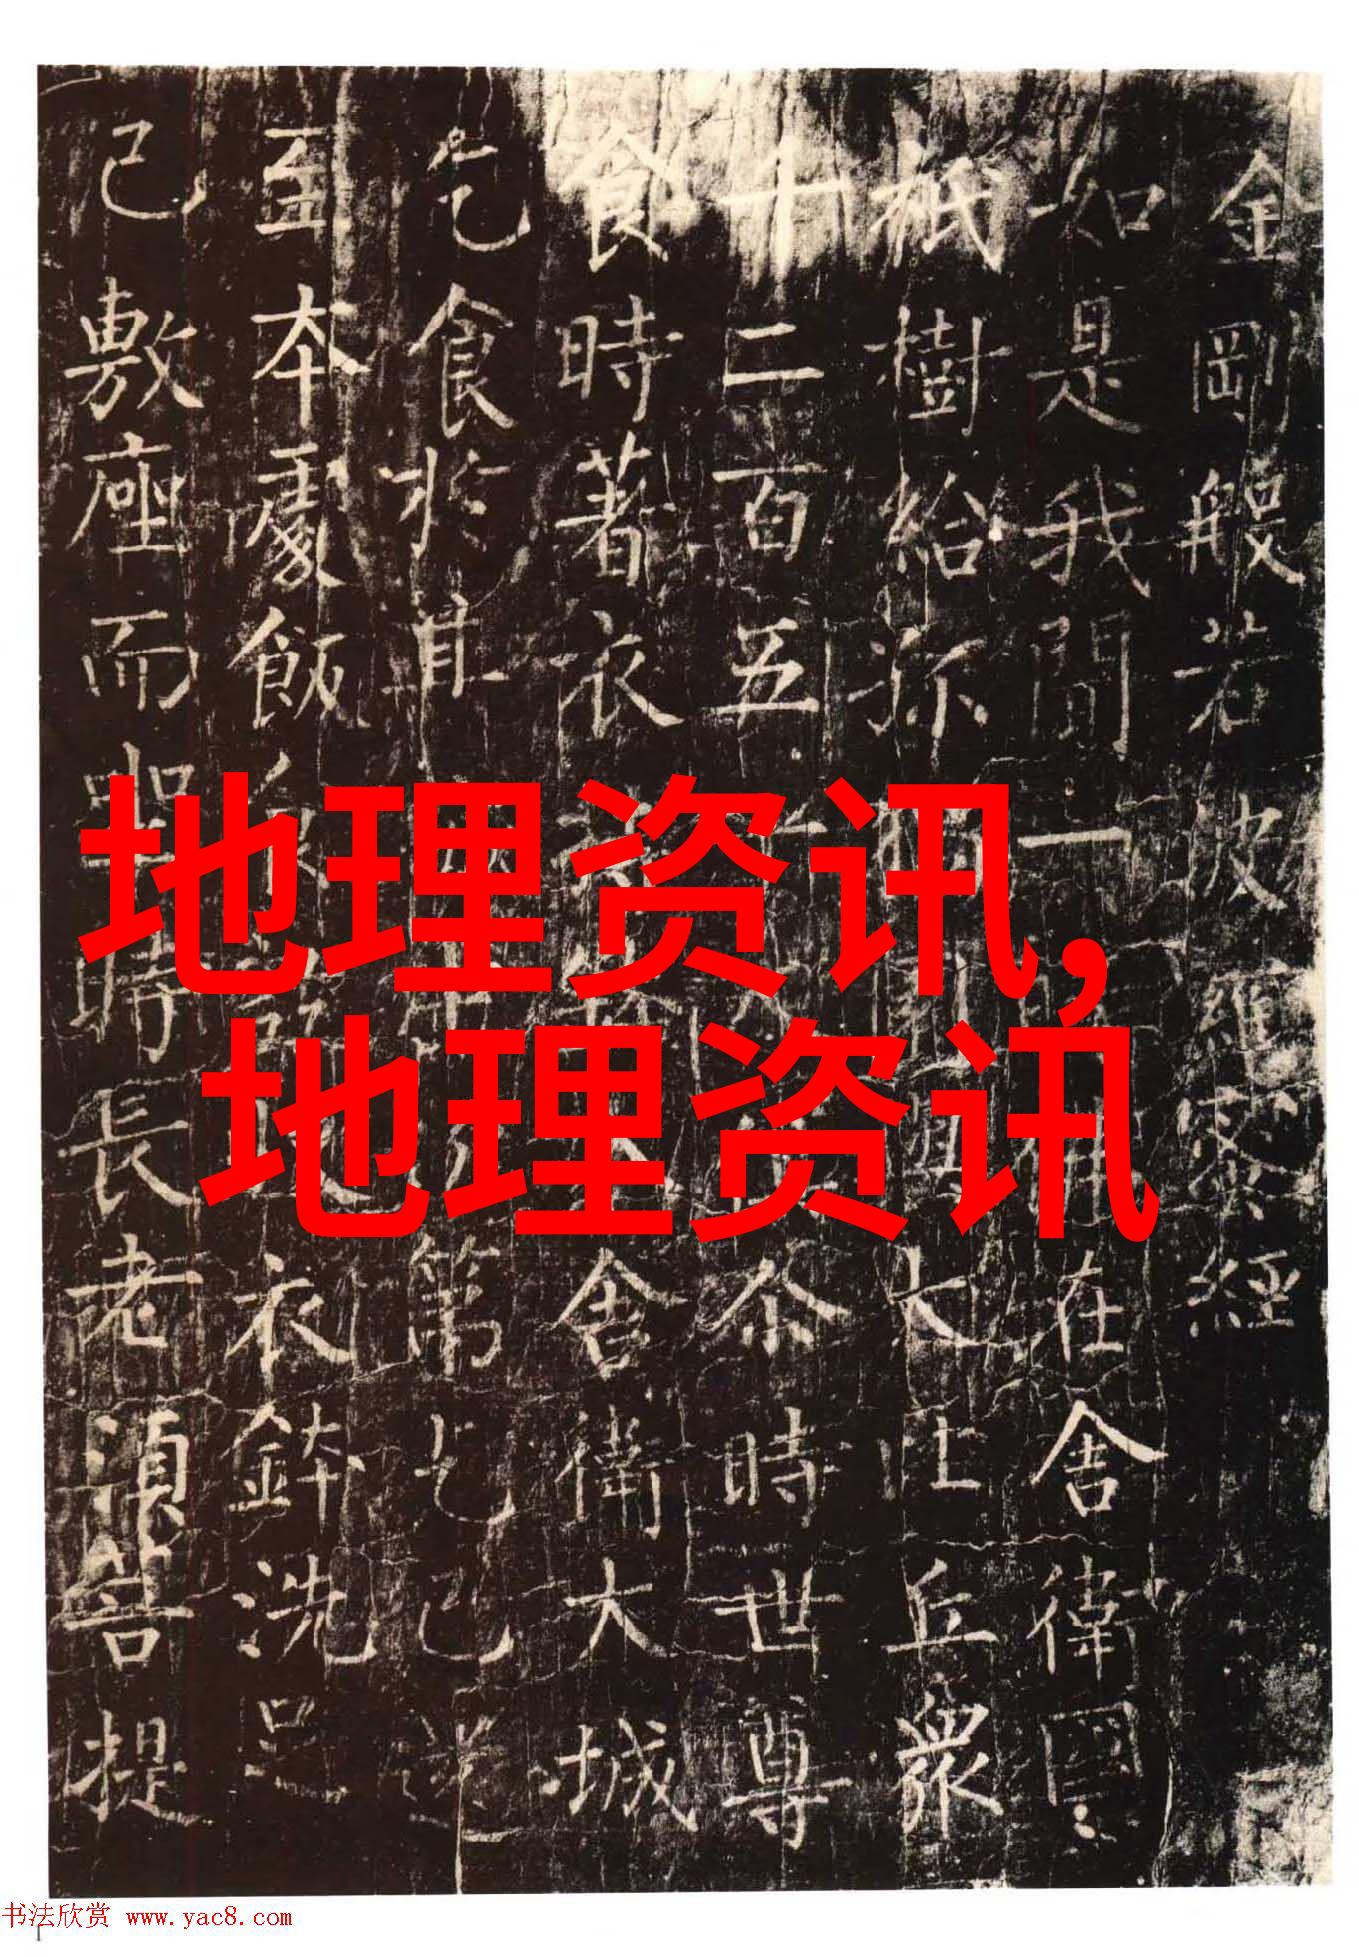 金剛般若波羅蜜經
如是我聞一在舍衛國
祇樹給孤大比丘衆
十二百五十尒時世尊
食時著衣舍衛大城
乞食於其第乞已還
至本處飯衣鉢洗足
已敷座而坐時長老須菩提
地理资讯,
地理资讯
书法欣赏 www.yac8.com